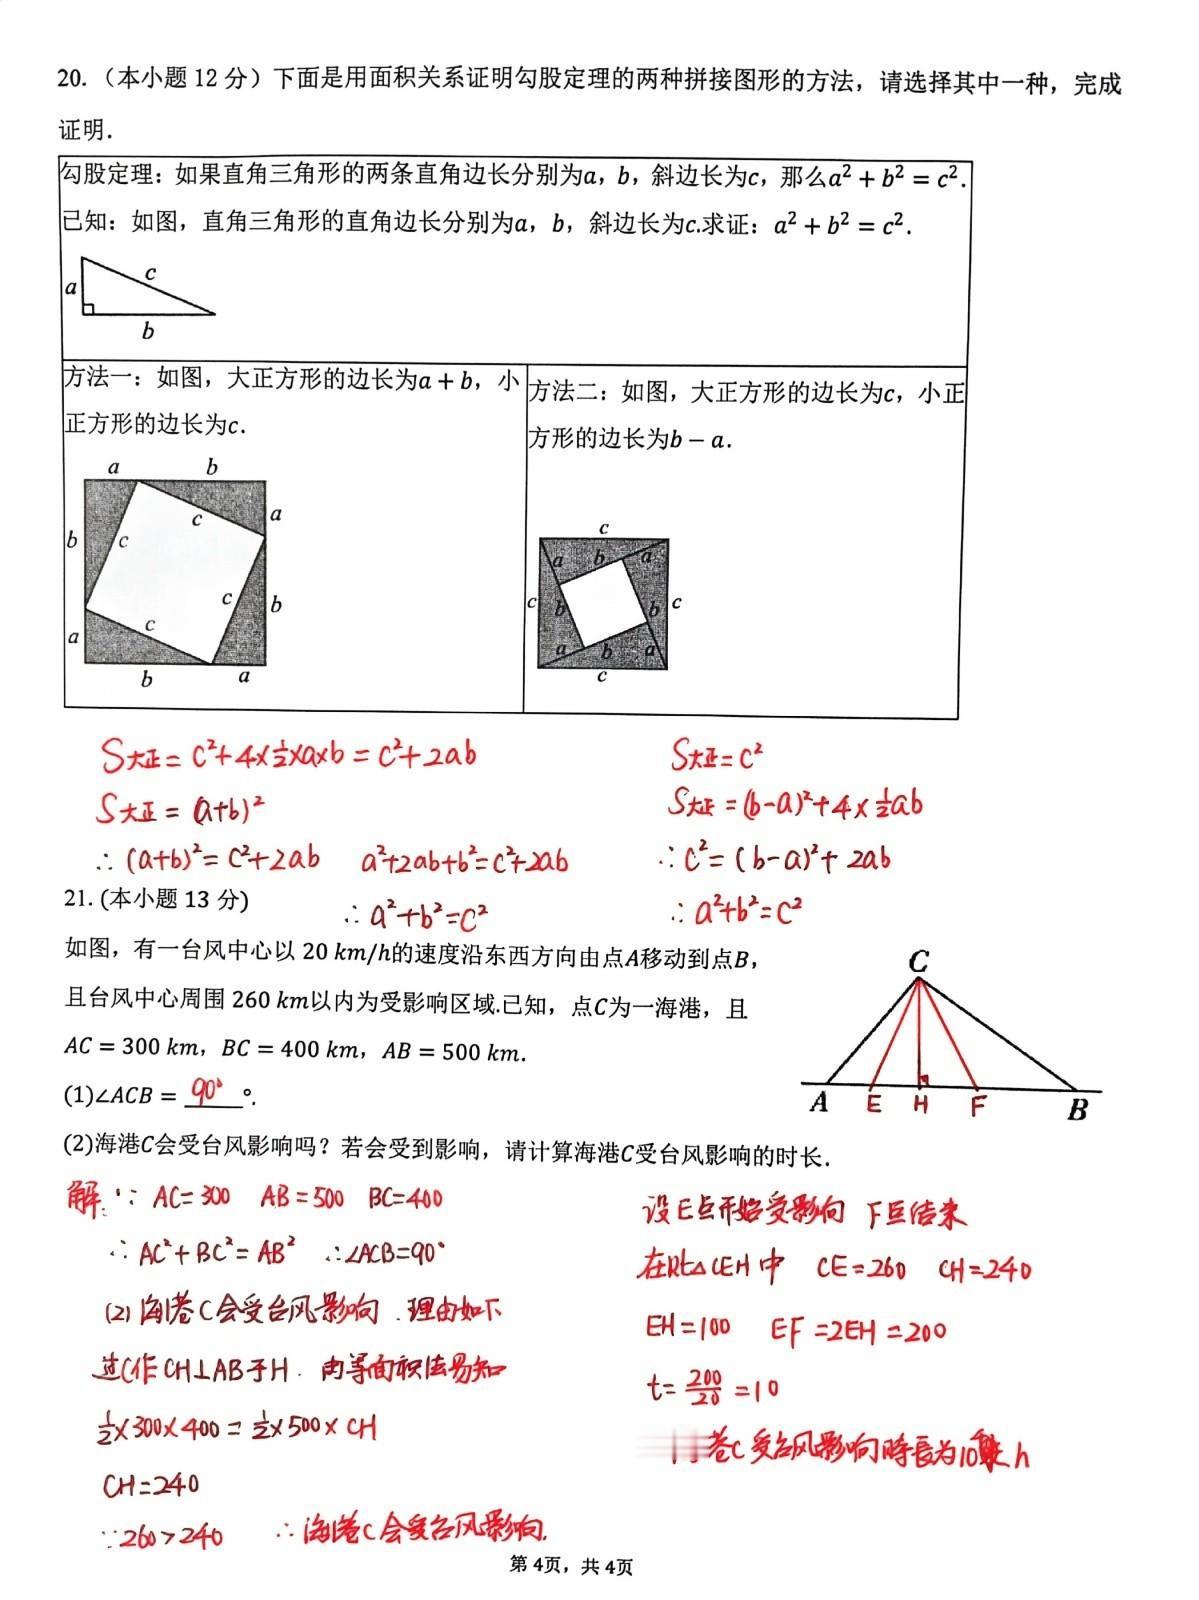 20.（本小题 12 分）下面是用面积关系证明勾股定理的两种拼接图形的方法，请选择其中一种，完成
证明.
勾股定理：如果直角三角形的两条直角边长分别为a，b，斜边长为c，那么a² + b² = c².
已知：如图，直角三角形的直角边长分别为a，b，斜边长为c.求证：a² + b² = c².
a
c
b
方法一：如图，大正方形的边长为a + b，小
正方形的边长为c.
a b
c a
b c
c b
a c
b a
方法二：如图，大正方形的边长为c，小正
方形的边长为b − a.
c
a b a
c b b c
a b a
c
S大正 = c²+4×½×a×b = c²+2ab
S大正 = (a+b)²
∴ (a+b)² = c²+2ab a²+2ab+b²=c²+2ab
∴ a²+b²=c²
S大正=c²
S大正 = (b-a)²+4×½ab
∴ c²= (b-a)²+ 2ab
∴ a²+b²=c²
21. (本小题 13 分)
如图，有一台风中心以 20 km/h的速度沿东西方向由点A移动到点B，
且台风中心周围 260 km以内为受影响区域.已知，点C为一海港，且
AC = 300 km，BC = 400 km，AB = 500 km.
(1)∠ACB = 90° °.
(2)海港C会受台风影响吗？若会受到影响，请计算海港C受台风影响的时长.
C
A E H F B
解: ∵ AC=300 AB=500 BC=400
∴ AC²+BC²=AB² ∴∠ACB=90°
(2) 海港C会受台风影响.理由如下
过C作CH⊥AB于H. 由等面积法易知
½×300×400 = ½×500×CH
CH=240
∵260>240 ∴海港C会受台风影响.
设E点开始受影响 F点结束
在Rt△CEH中 CE=260 CH=240
EH=100 EF=2EH=200
t=200/20=10
港C受台风影响时长为10 h
第 4页，共 4页